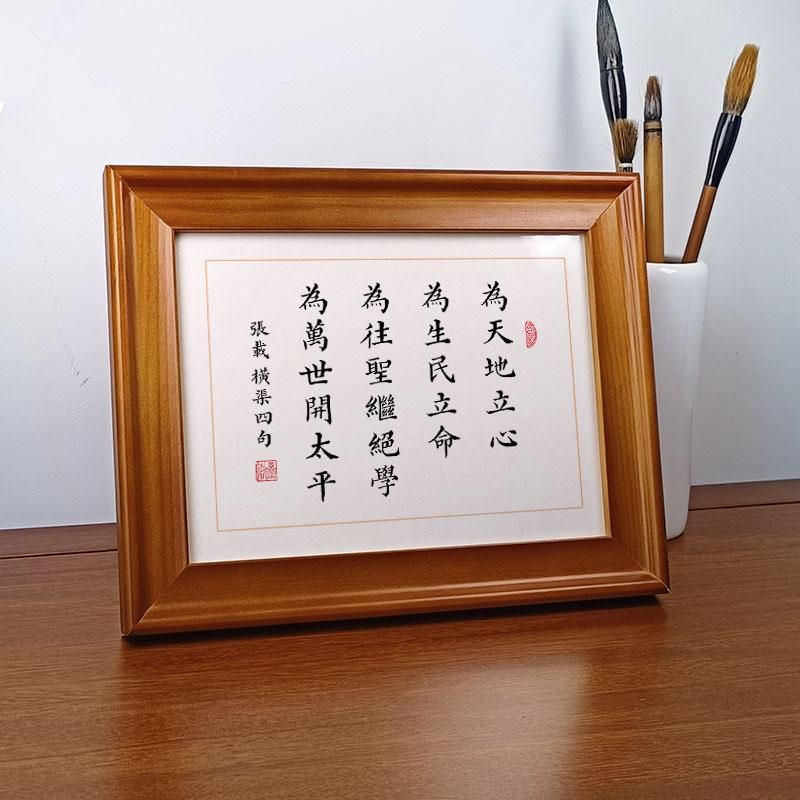 為天地立心
為生民立命
為往聖繼絕學
為萬世開太平
張載 橫渠四句